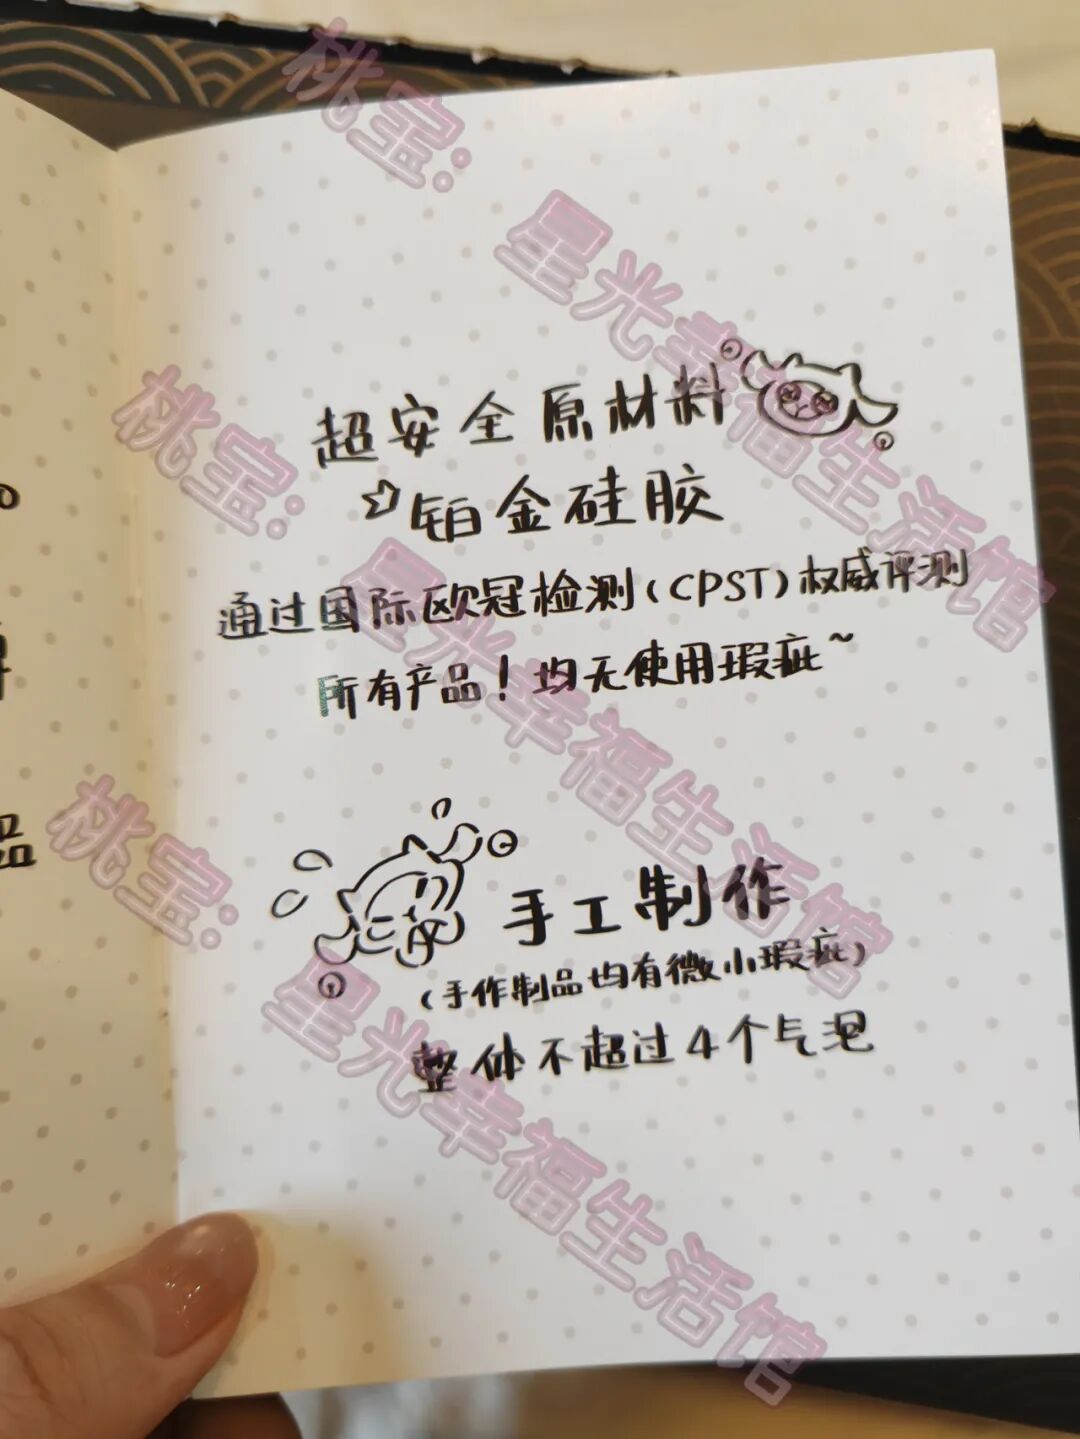 超安全原材料
铂金硅胶
通过国际欧冠检测(CPST)权威评测
所有产品！均无使用瑕疵~
手工制作
(手作制品均有微小瑕疵)
整体不超过4个气泡
品
桃宝：星光幸福生活馆
桃宝：星光幸福生活馆
桃宝：星光幸福生活馆